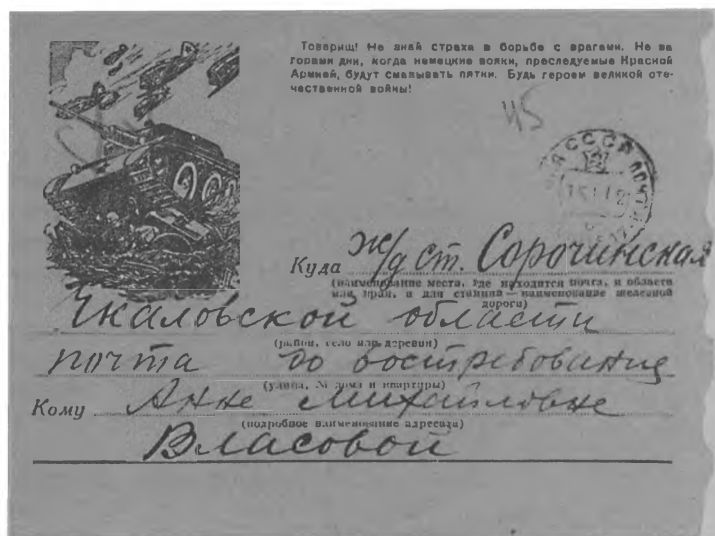 Товарищ! Не знай страха в борьбе с врагами. Не за
горами дни, когда немецкие вояки, преследуемые Красной
Армией, будут смазывать пятки. Будь героем великой оте-
чественной войны!
45
СССР ПОЧТА
Куда ж/д ст. Сорочинская
(наименование места, где находится почта, и области
или края, а для станций — наименование железной
дороги)
Чкаловской области
(район, село или деревня)
почта до востребования
(улица, № дома и квартиры)
Кому Анне Михайловне
(подробное наименование адресата)
Власовой